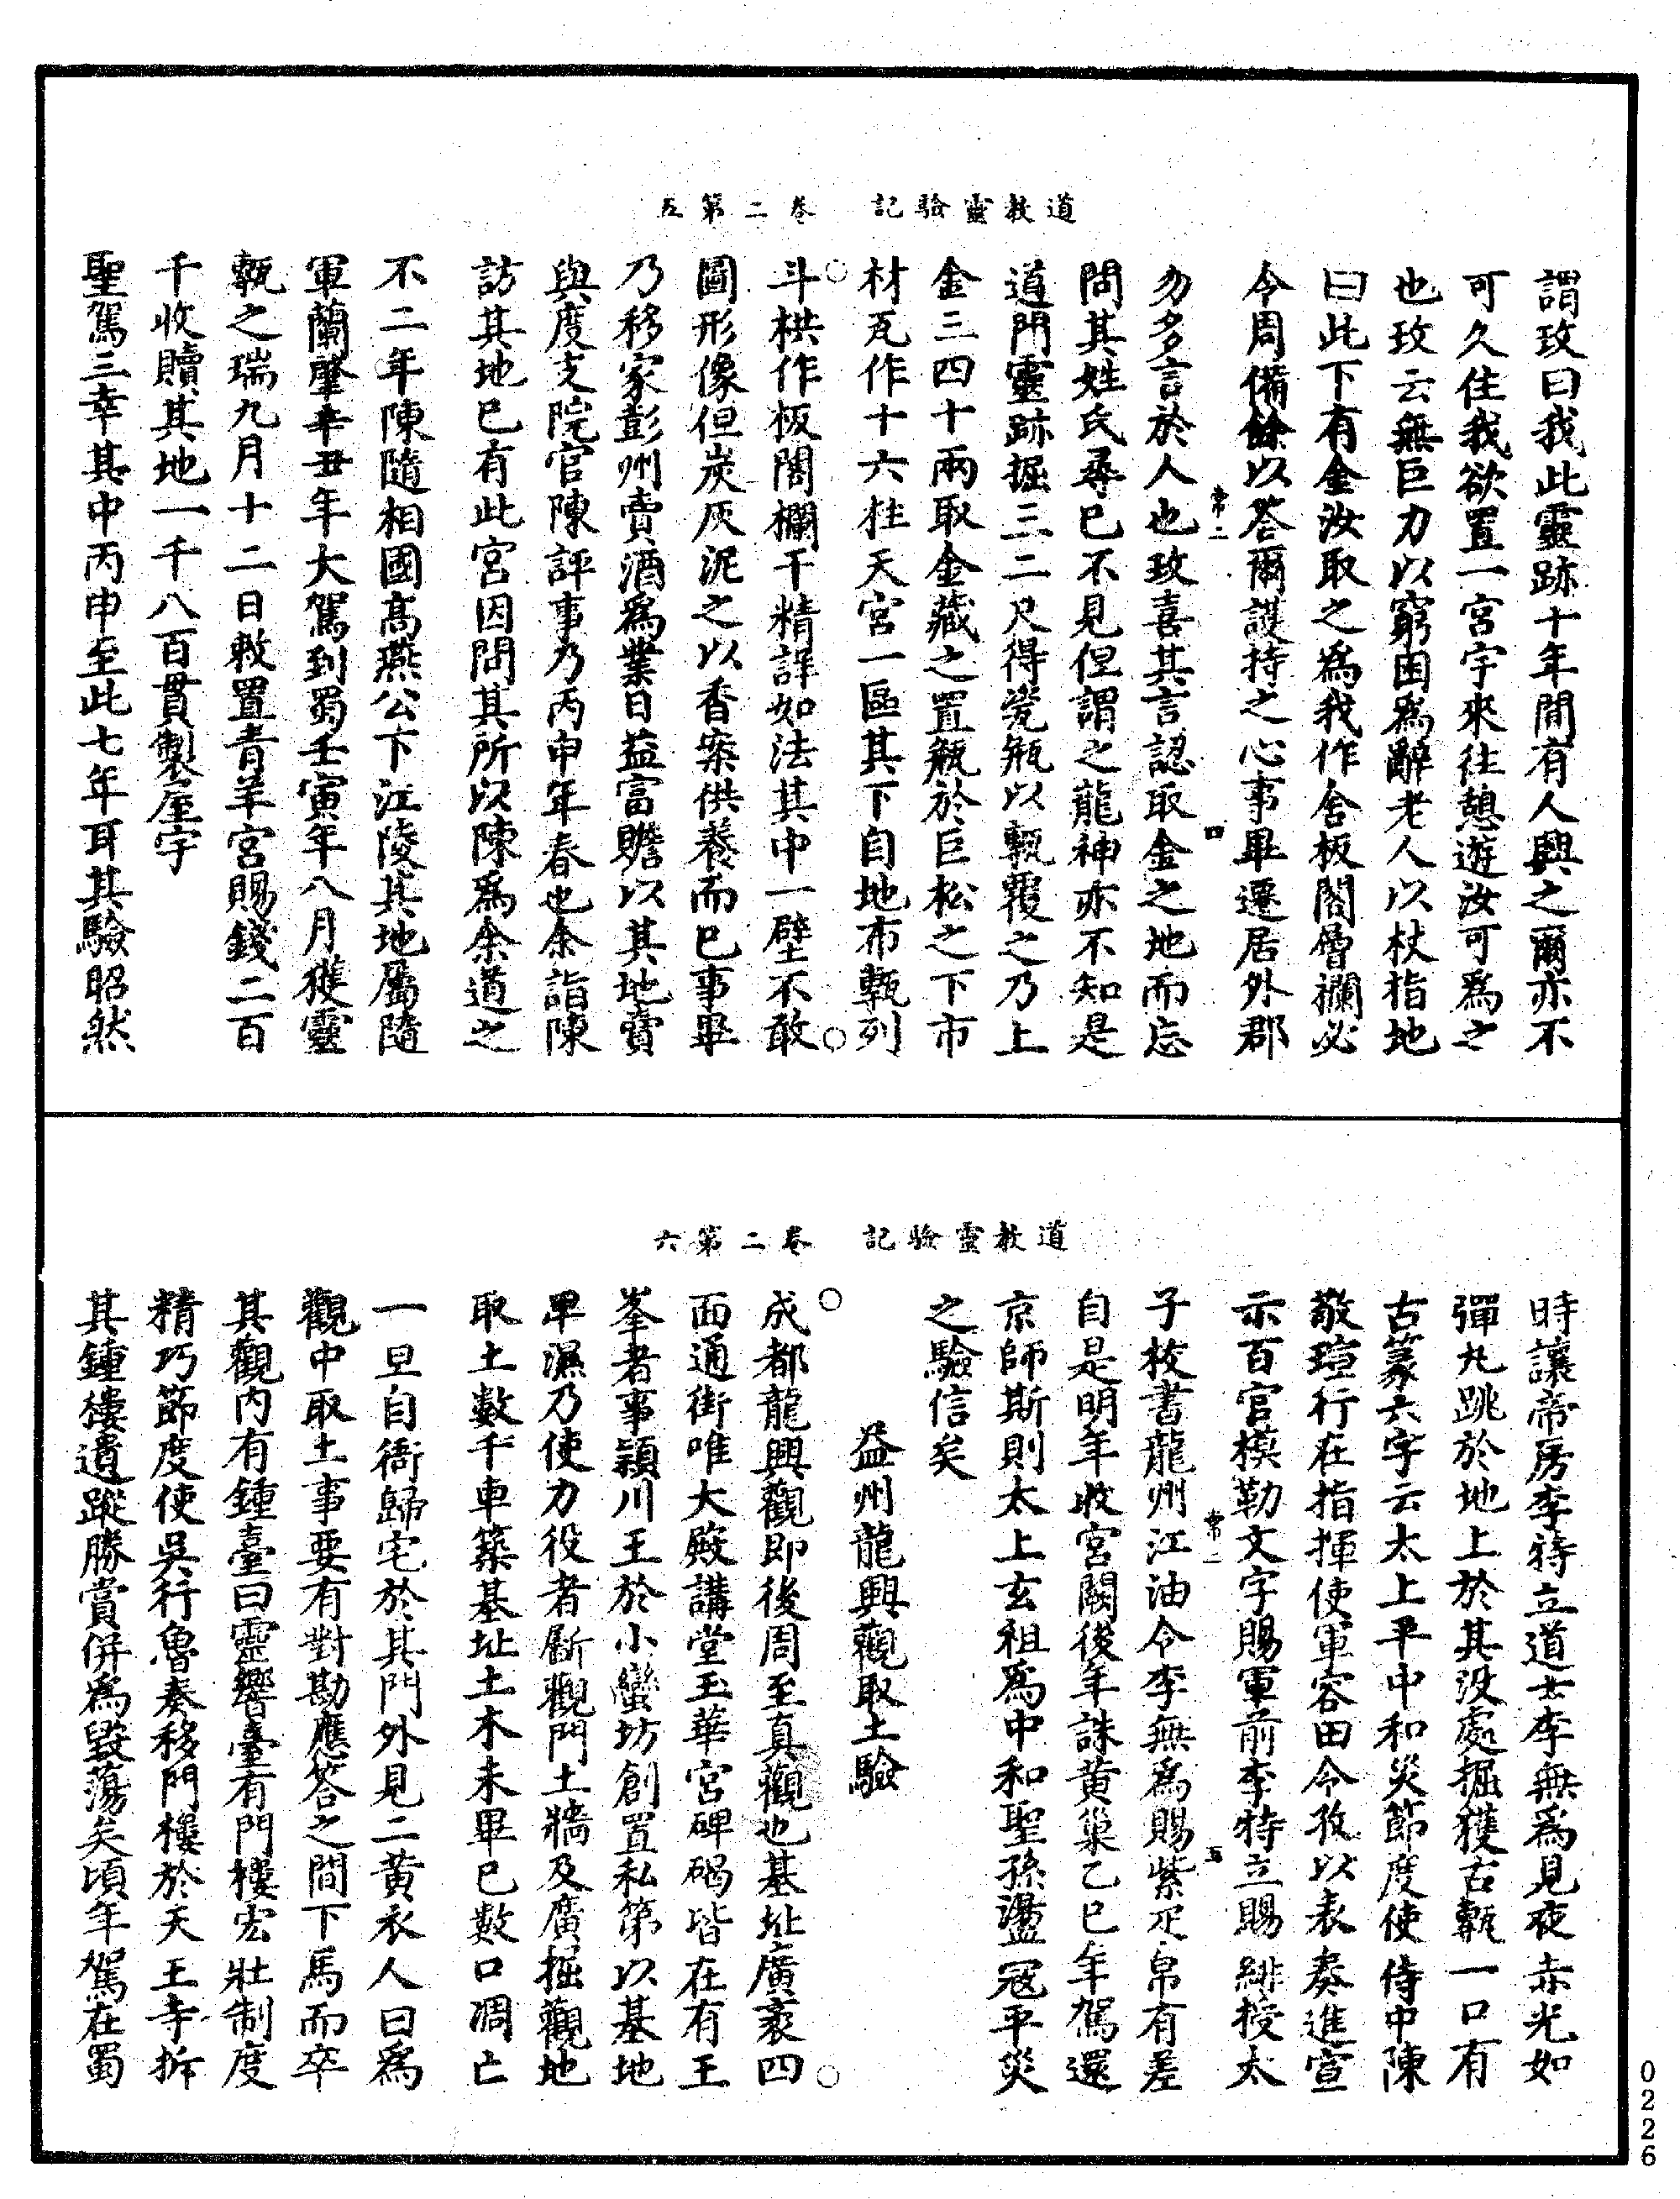 道教靈驗記　卷二第五
謂玫曰我此靈跡十年間有人興之爾亦不
可久住我欲置一宮宇來往憩遊汝可為之
也玫云無巨力以窮困為辭老人以杖指地
曰此下有金汝取之為我作舍板閣層欄必
令周備餘以荅爾護持之心事畢遷居外郡
常二
四
勿多言於人也玫喜其言認取金之地而忘
問其姓氏尋已不見但謂之龍神亦不知是
道門靈跡掘三二尺得瓷瓶以甎覆之乃上
金三四十兩取金藏之置瓶於巨松之下市
材瓦作十六柱天宮一區其下自地布甎列
斗栱作板閣欄干精詳如法其中一壁不敢
圖形像但炭灰泥之以香案供養而已事畢
乃移家彭州賣酒為業日益富贍以其地賣
與度支院官陳評事乃丙申年春也余詣陳
訪其地已有此宮因問其所以陳為余道之
不二年陳隨相國高燕公下江陵其地屬隨
軍蘭肇辛丑年大駕到蜀壬寅年八月獲靈
甎之瑞九月十二日敕置青羊宮賜錢二百
千收贖其地一千八百貫製屋宇
聖駕三幸其中丙申至此七年耳其驗昭然
道教靈驗記　卷二第六
時讓帝房李特立道士李無為見夜赤光如
彈丸跳於地上於其沒處掘獲古甎一口有
古篆六字云太上平中和災節度使侍中陳
敬瑄行在指揮使軍容田令孜以表奏進宣
示百官模勒文字賜軍前李特立賜緋授太
常一
五
子校書龍州江油令李無為賜紫疋帛有差
自是明年收宮闕後年誅黃巢乙巳年駕還
京師斯則太上玄祖為中和聖孫盪寇平災
之驗信矣
益州龍興觀取土驗
成都龍興觀即後周至真觀也基址廣袤四
面通街唯大殿講堂玉華宮碑碣皆在有王
峯者事頴川王於小蠻坊創置私第以基地
卑濕乃使力役者斸觀門土牆及廣掘觀地
取土數千車築基址土木未畢已數口凋亡
一旦自衙歸宅於其門外見二黃衣人曰為
觀中取土事要有對勘應答之間下馬而卒
其觀內有鍾臺曰靈響臺有門樓宏壯制度
精巧節度使吳行魯奏移門樓於天王寺拆
其鍾樓遺蹤勝賞併為毀蕩矣頃年駕在蜀
0226